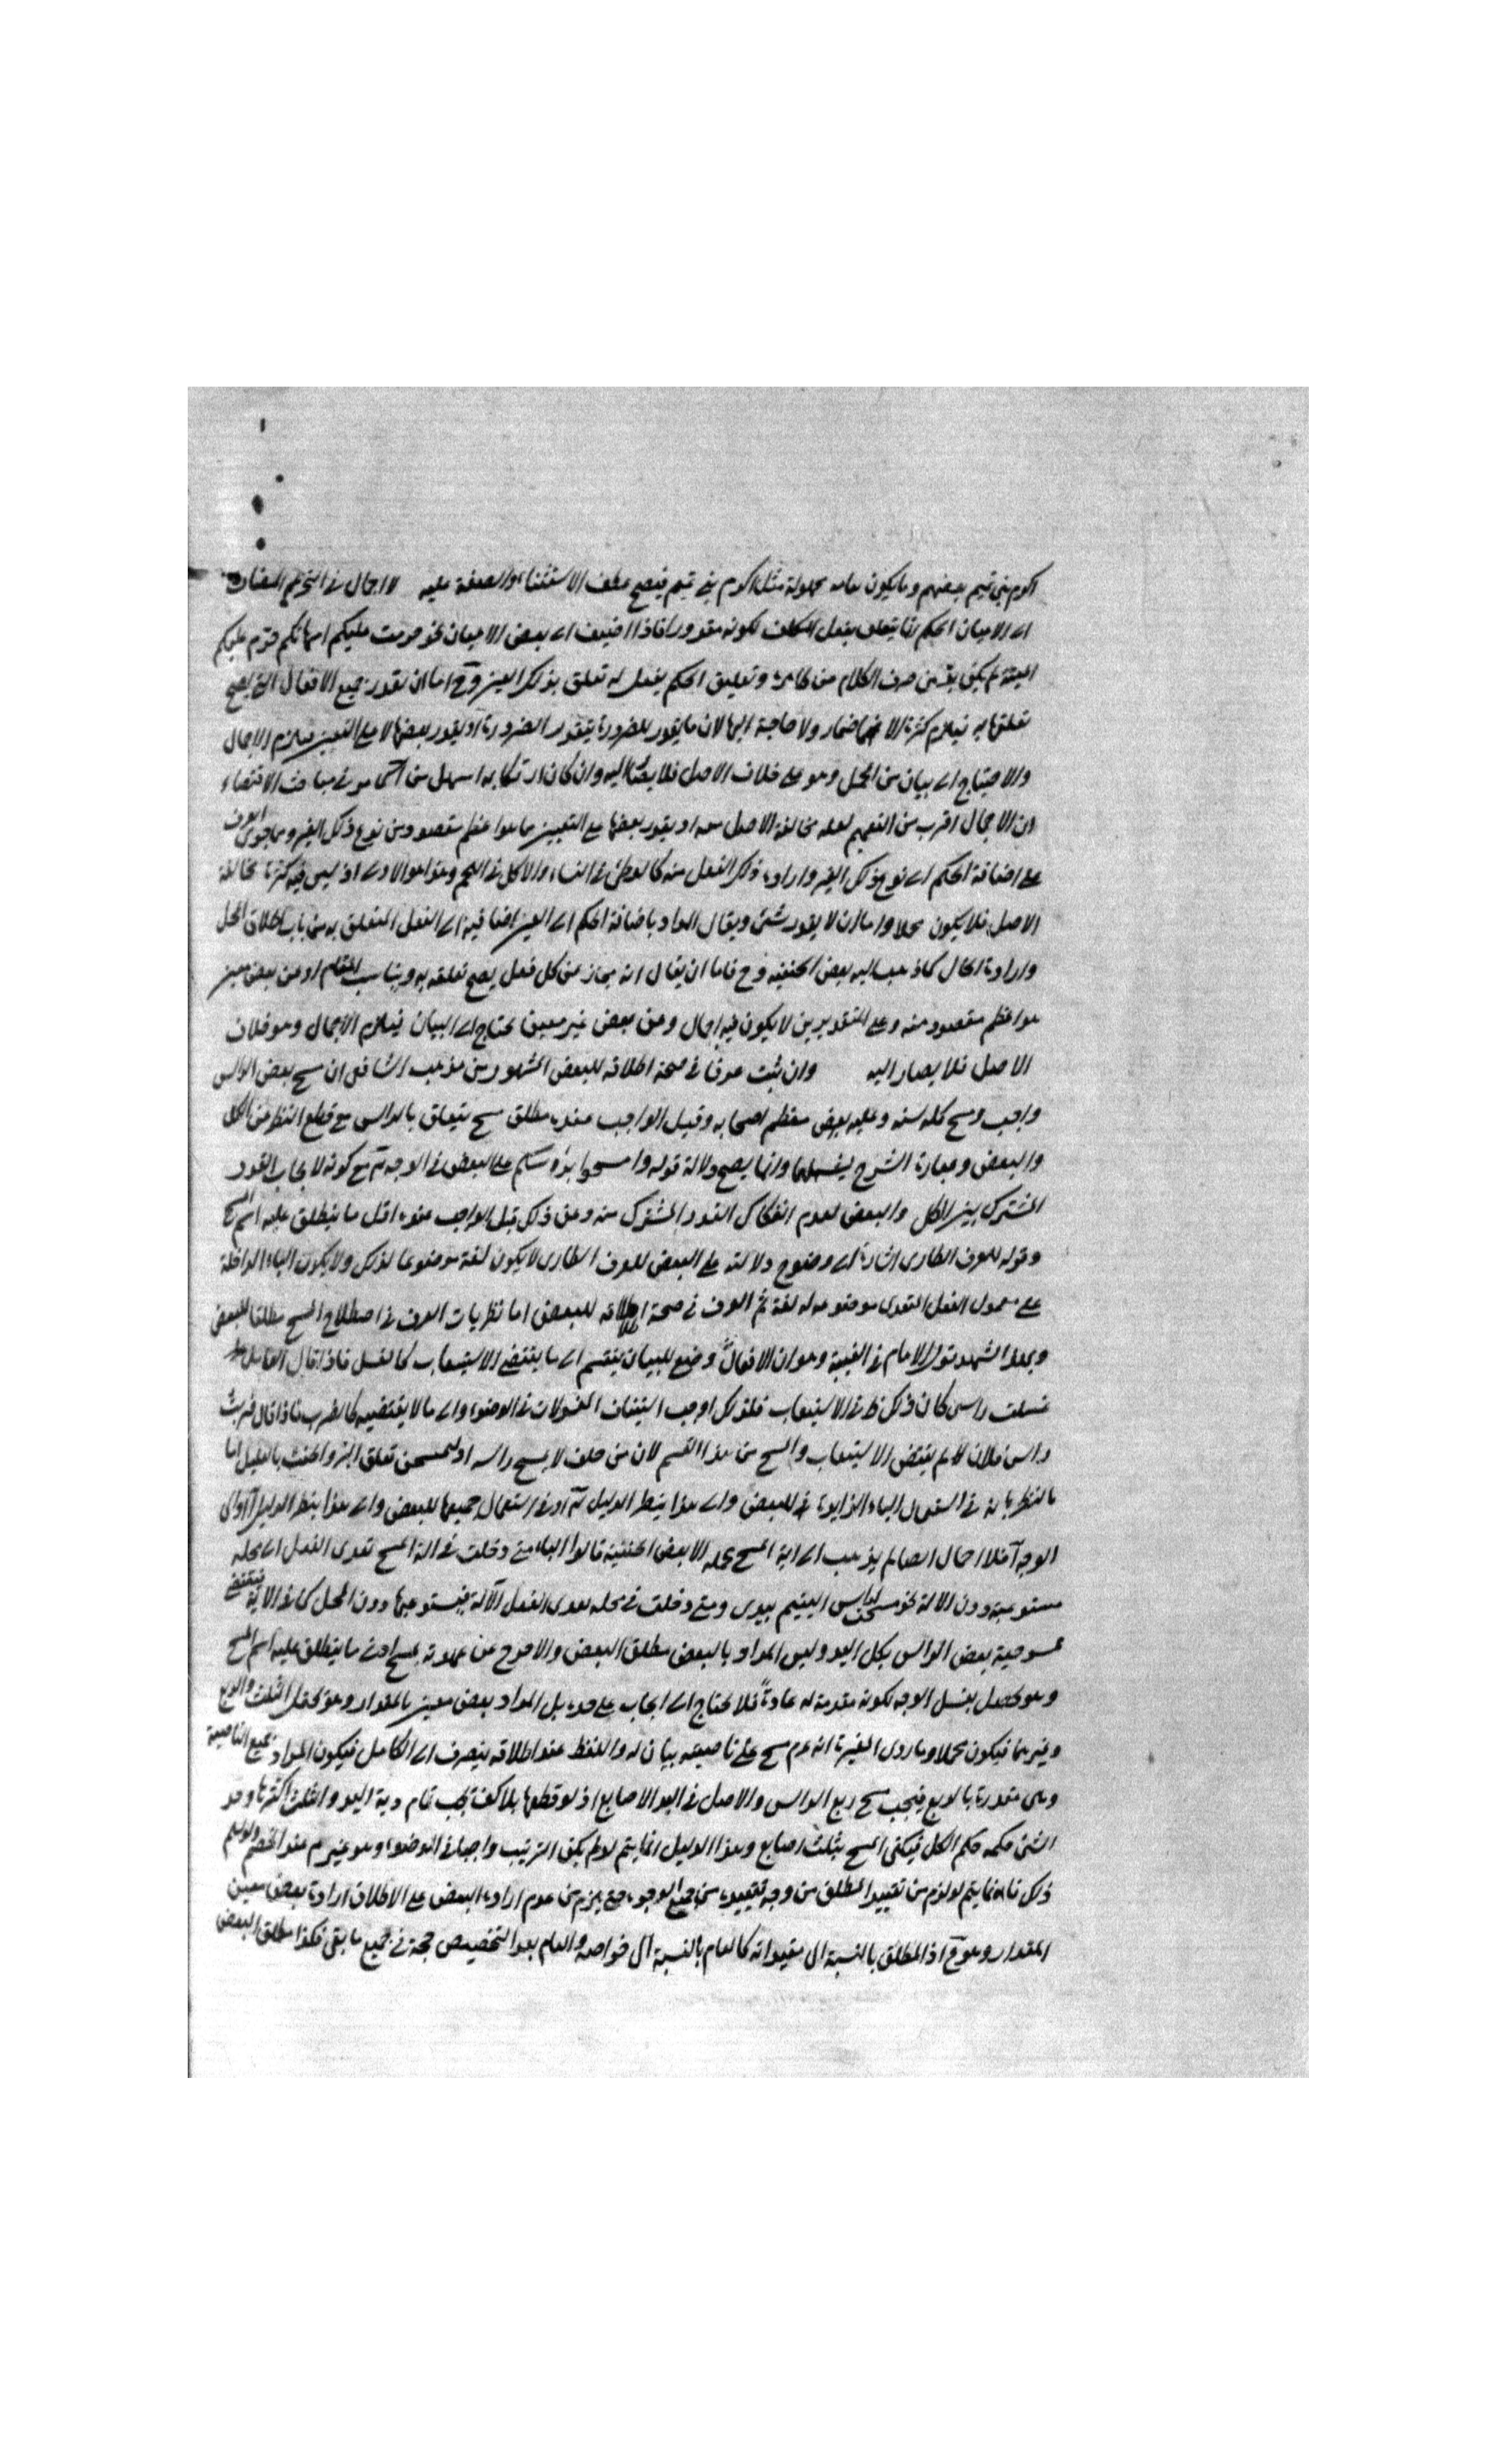 اكرم بني تميم بعضهم وما يكون عامه مجهولة مثل اكرم بني تميم فيصح عطف الاستثناء والصفة عليه لا اجمال في التحريم المضاف
الى الاعيان الحكم انما يتعلق بفعل المكلف لكونه مقدورا فاذا اضيف الى بعض الاعيان نحو حرمت عليكم امهاتكم حرم عليكم
الميتة لم يكن بد من صرف الكلام عن ظاهره وتعليق الحكم بفعل له تعلق بذلك العين وح اما ان يقدر جميع الافعال التي يصح
تعلقها به فيلزم كثرة الاضمار ولا حاجة اليها لان ما يقدر للضرورة يتقدر بقدر الضرورة او يقدر بعضها لا على التعيين فيلزم الاجمال
والاحتياج الى بيان من المجمل وهو على خلاف الاصل فلا يصار اليه وان كان ارتكابه اسهل من لما مر في مباحث الاقتضاء
ان الاجمال اقرب من التعميم لعله مخالفة الاصل معه او يقدر بعضها على التعيين مما هو اعظم مقصود من نوع ذلك الغير ومما جرى العرف
على اضافة الحكم الى نوع ذلك الغير وارادة ذلك الفعل منه كالوطئ في النساء والاكل في اللحم وهذا هو الاولى اذ ليس فيه كثرة مخالفة
الاصل فلا يكون مجملا واما ان لا يقدر شئ ويقال المراد باضافة الحكم الى العين اضافته الى الفعل المتعلق به من باب اطلاق المحل
وارادة الحال كما ذهب اليه بعض الحنفية وح فاما ان يقال انه مجاز عن كل فعل يصح تعلقه به ويناسب المقام او عن بعض معين
هو اعظم مقصود منه وعلى التقديرين لا يكون فيه اجمال وعن بعض غير معين يحتاج الى البيان فيلزم الاجمال وهو خلاف
الاصل فلا يصار اليه وان ثبت عرفا في صحة اطلاقه للبعض المشهور من مذهب الشافعي ان مسح بعض الراس
واجب ومسح كله سنه وعليه بعض معظم اصحابه وقيل الواجب عنده مطلق مسح يتعلق بالراس مع قطع النظر عن الكل
والبعض وعبارة الشرح يفسرهما وانما يصح دلالة قوله وامسحوا برؤسكم على البعض في الوجه مع كونه لايجاب القدر
المشترك بين الكل والبعض لعدم انفكاك القدر المشترك منه وعن ذلك قيل الواجب عنده اقل ما ينطلق عليه اسم المسح
وقوله للعرف الطارى اشارة الى وضوح دلالته على البعض للعرف الطارى لا يكون لغة موضوعا لذلك ولا يكون الباء الداخلة
على معمول الفعل المتعدى موضوعه له لغة ثم العرف في صحة اطلاقه للبعض اما نظريات العرف في اصطلاح المسح مطلقا للبعض
وبهذا الشهد قول الامام في الغيبة وهو ان الافعال وضع للبيان ينقسم الى ما يقتضي الاستيعاب كالغسل فاذا قال القائل
غسلت راسي كان ذلك في الاستيعاب فلذلك اوجب استيفاء المغسولات في الوضوء والى ما لا يقتضيه كالضرب فاذا قال ضربت
راس فلان لم يقتض الاستيعاب والمسح من هذا القسم لان من حلف لا يمسح راسه او ليمسحن تعلق البر والحنث بالقليل اما
بالنظر في استعمال الباء الزايدة للبعض والى هذا ينظر الدليل او في استعمال جميعها للبعض والى هذا ينظر الدليل
الوجه يذهب الى اية المسح مجمله الا بعض الحنفية قالوا الباء متى دخلت في الة المسح تعدى الفعل الى محله
مستوعبة دون الالة نحو مسحت راس اليتيم بيدى ومتى دخلت في محله تعدى الفعل الى الالة فيستوعبها دون المحل كما في الاية فيقتضي
ممسوحية بعض الراس بكل اليد وليس المراد بالبعض مطلق البعض والا خرج عن عهدته بمسح ادنى ما ينطلق عليه اسم المسح
وهو يحصل بغسل الوجه لكونه مقدمة له عادة فلا يحتاج الى ايجاب على حده بل المراد بعض معين بالمقدار وهو يحتمل الثلث والربع
وغيرهما فيكون مجملا وما روى المغيرة انه عم مسح على ناصيته بيان له واللفظ عند اطلاقه ينصرف الى الكامل فيكون المراد جميع الناصية
وهى مقدرة بالربع فيجب مسح ربع الراس والاصل في اليد الاصابع اذ لو قطعها بلا كف يجب تمام دية اليد والثلث اكثرها وهو
الشئ حكمه حكم الكل فيكفى المسح بثلث اصابع وهذا الدليل انما يتم لو لم يكن الترتيب واجبا في الوضوء وهو غير م عند الخصم ولو سلم
ذلك فانما يتم لو لزم من تقييد المطلق من وجه تقييده من جميع الوجوه حتى يلزم من عدم ارادة البعض على الاطلاق ارادة بعض معين
المقدار وهو م اذ المطلق بالنسبة الى مقيداته كالعام بالنسبة الى خواصه والعام بعد التخصيص حجة في جميع ما بقى فكذا مطلق البعض